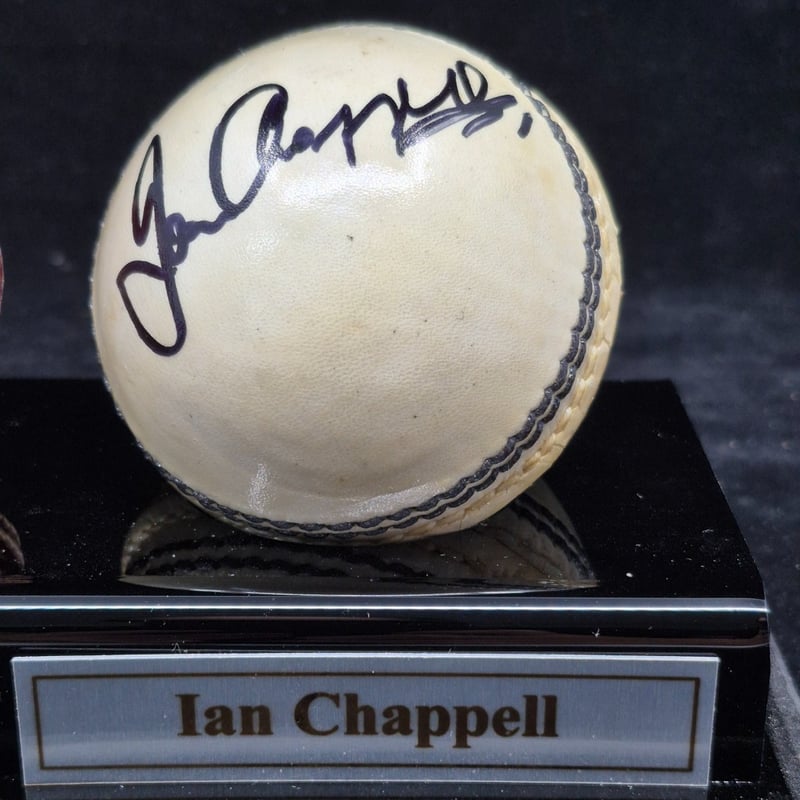 Ian Chappell
Ian Chappell